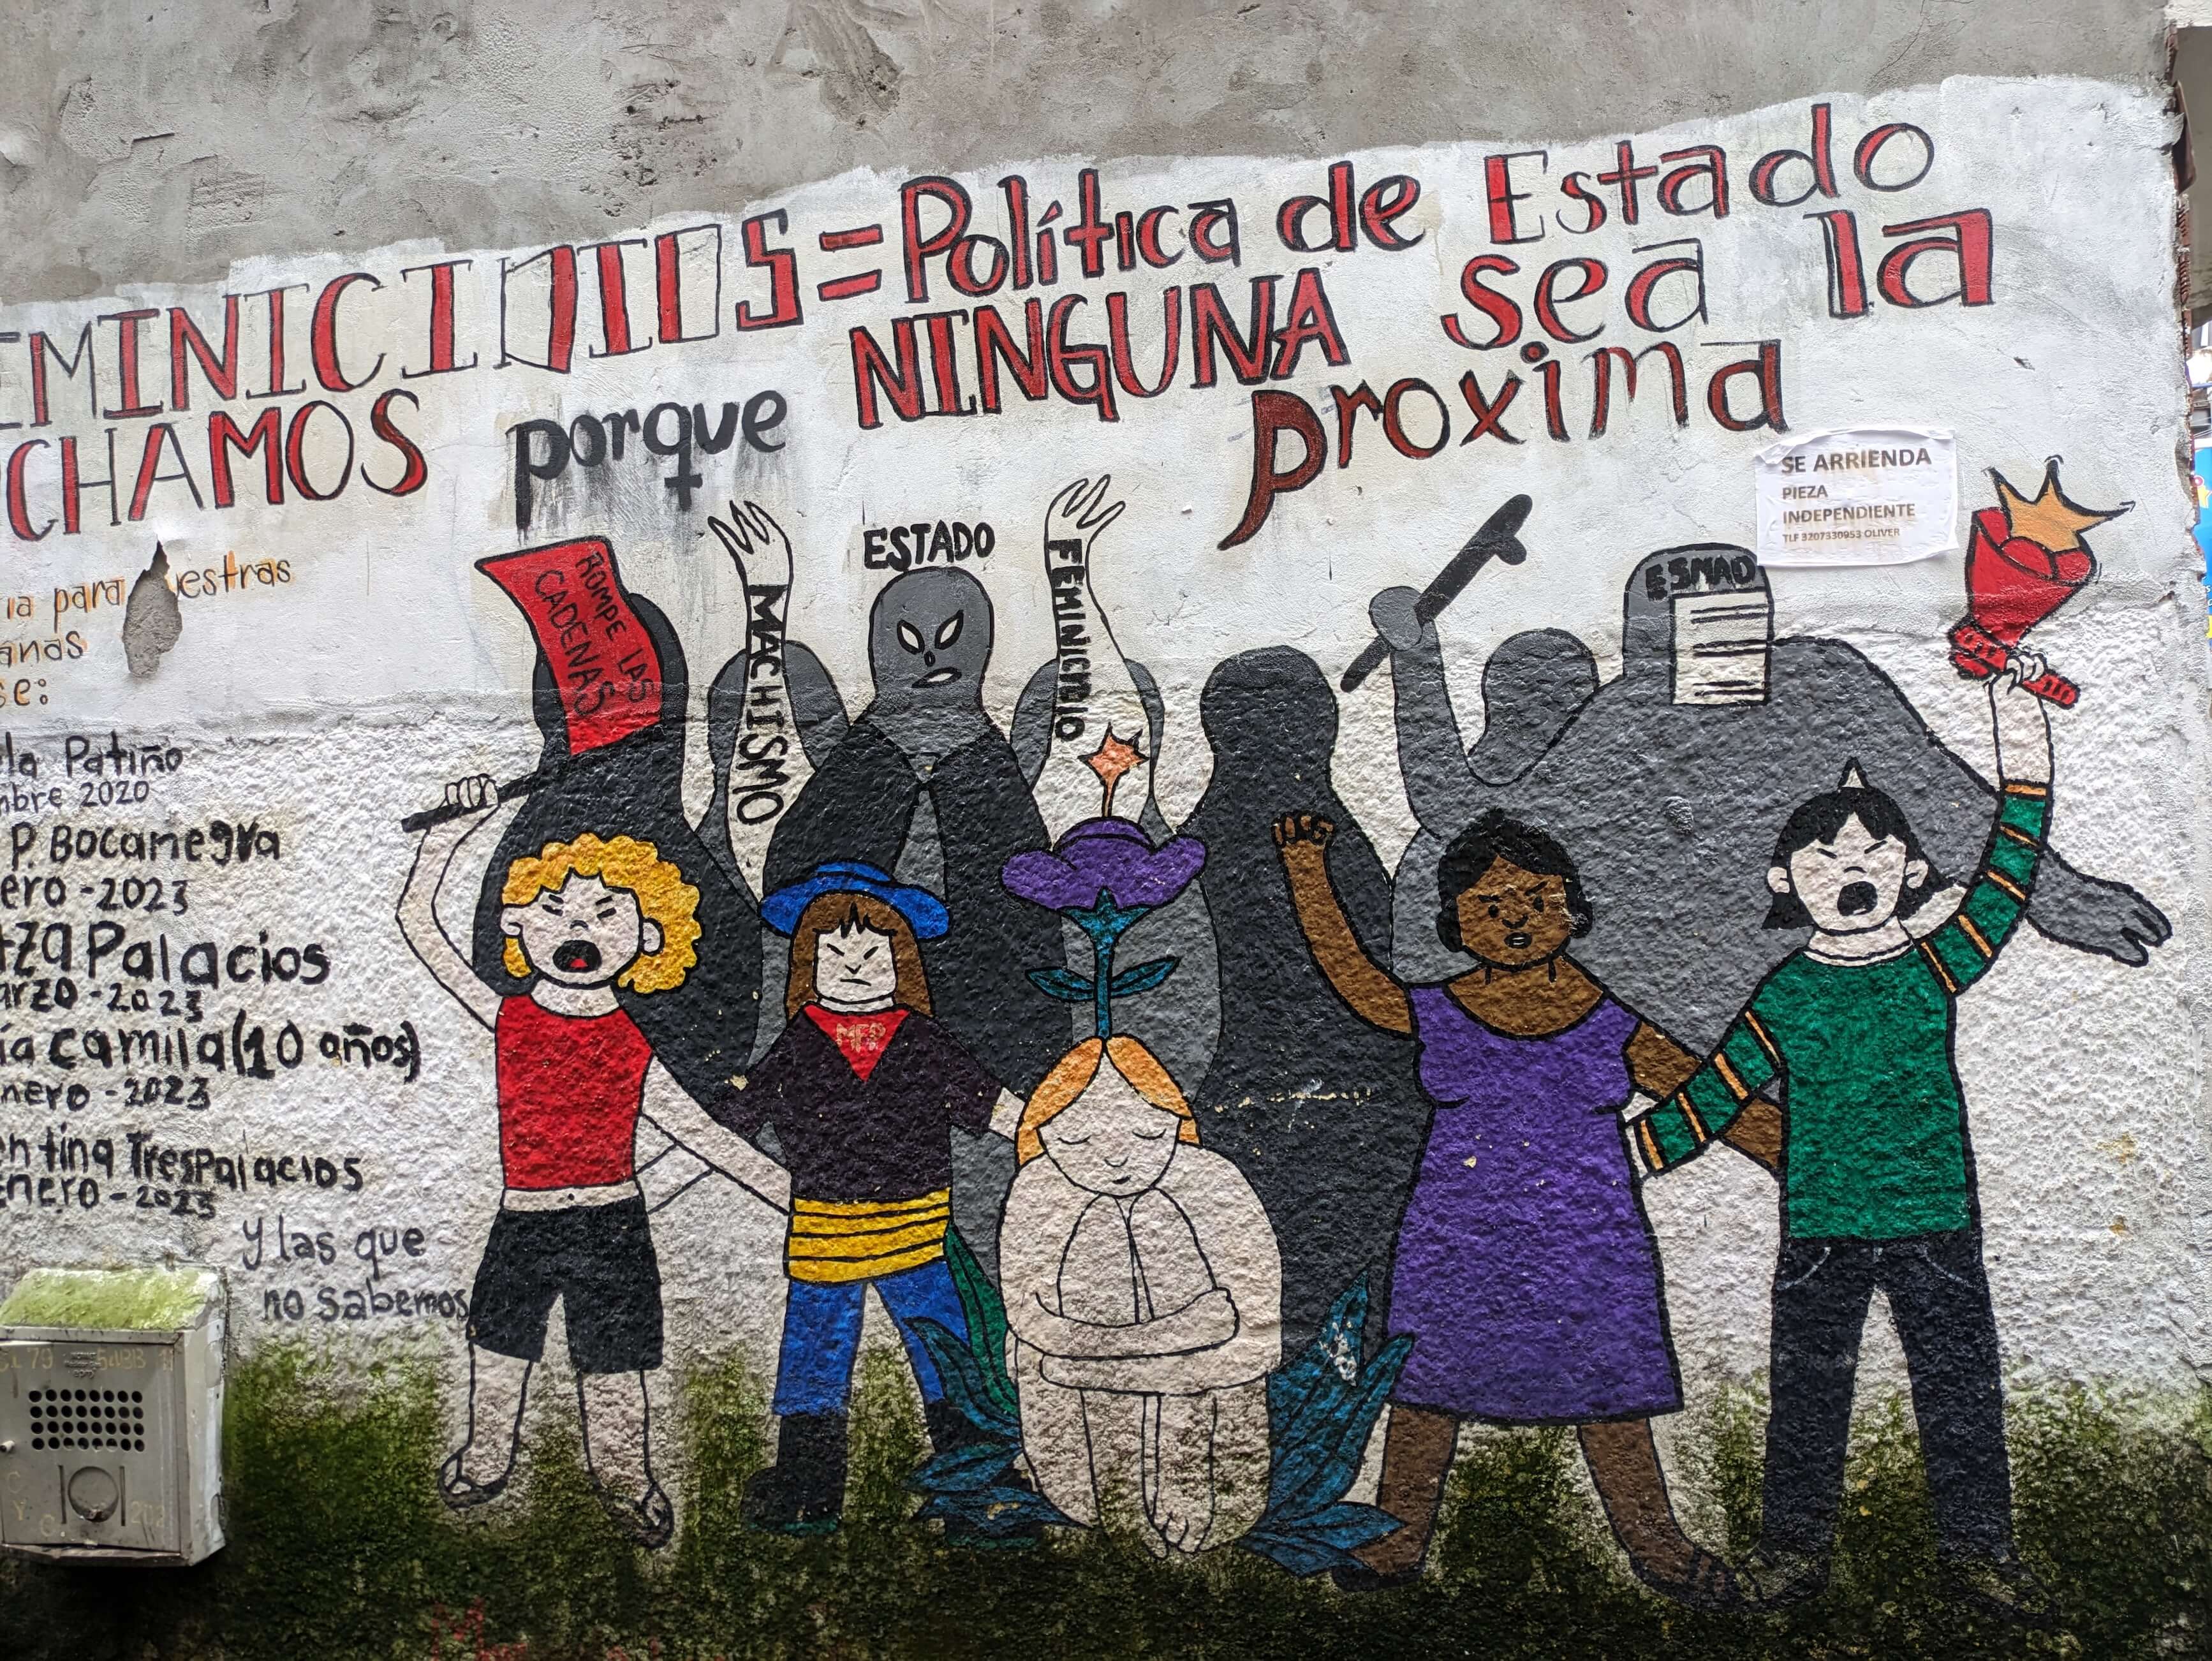 EMINICIDIOS = Política de Estado
CHAMOS porque NINGUNA sea la
proxima
ia para uestras
anas
se:
la Patiño
mbre 2020
P. Bocanegra
ero - 2023
tza Palacios
arzo - 2023
ía camila (10 años)
nero - 2023
entina TresPalacios
Enero - 2023
y las que
no sabemos
ROMPE LAS
CADENAS
MACHISMO
ESTADO
FEMINICIDIO
ESMAD
SE ARRIENDA
PIEZA
INDEPENDIENTE
TLF 3207330953 OLIVER
MFP